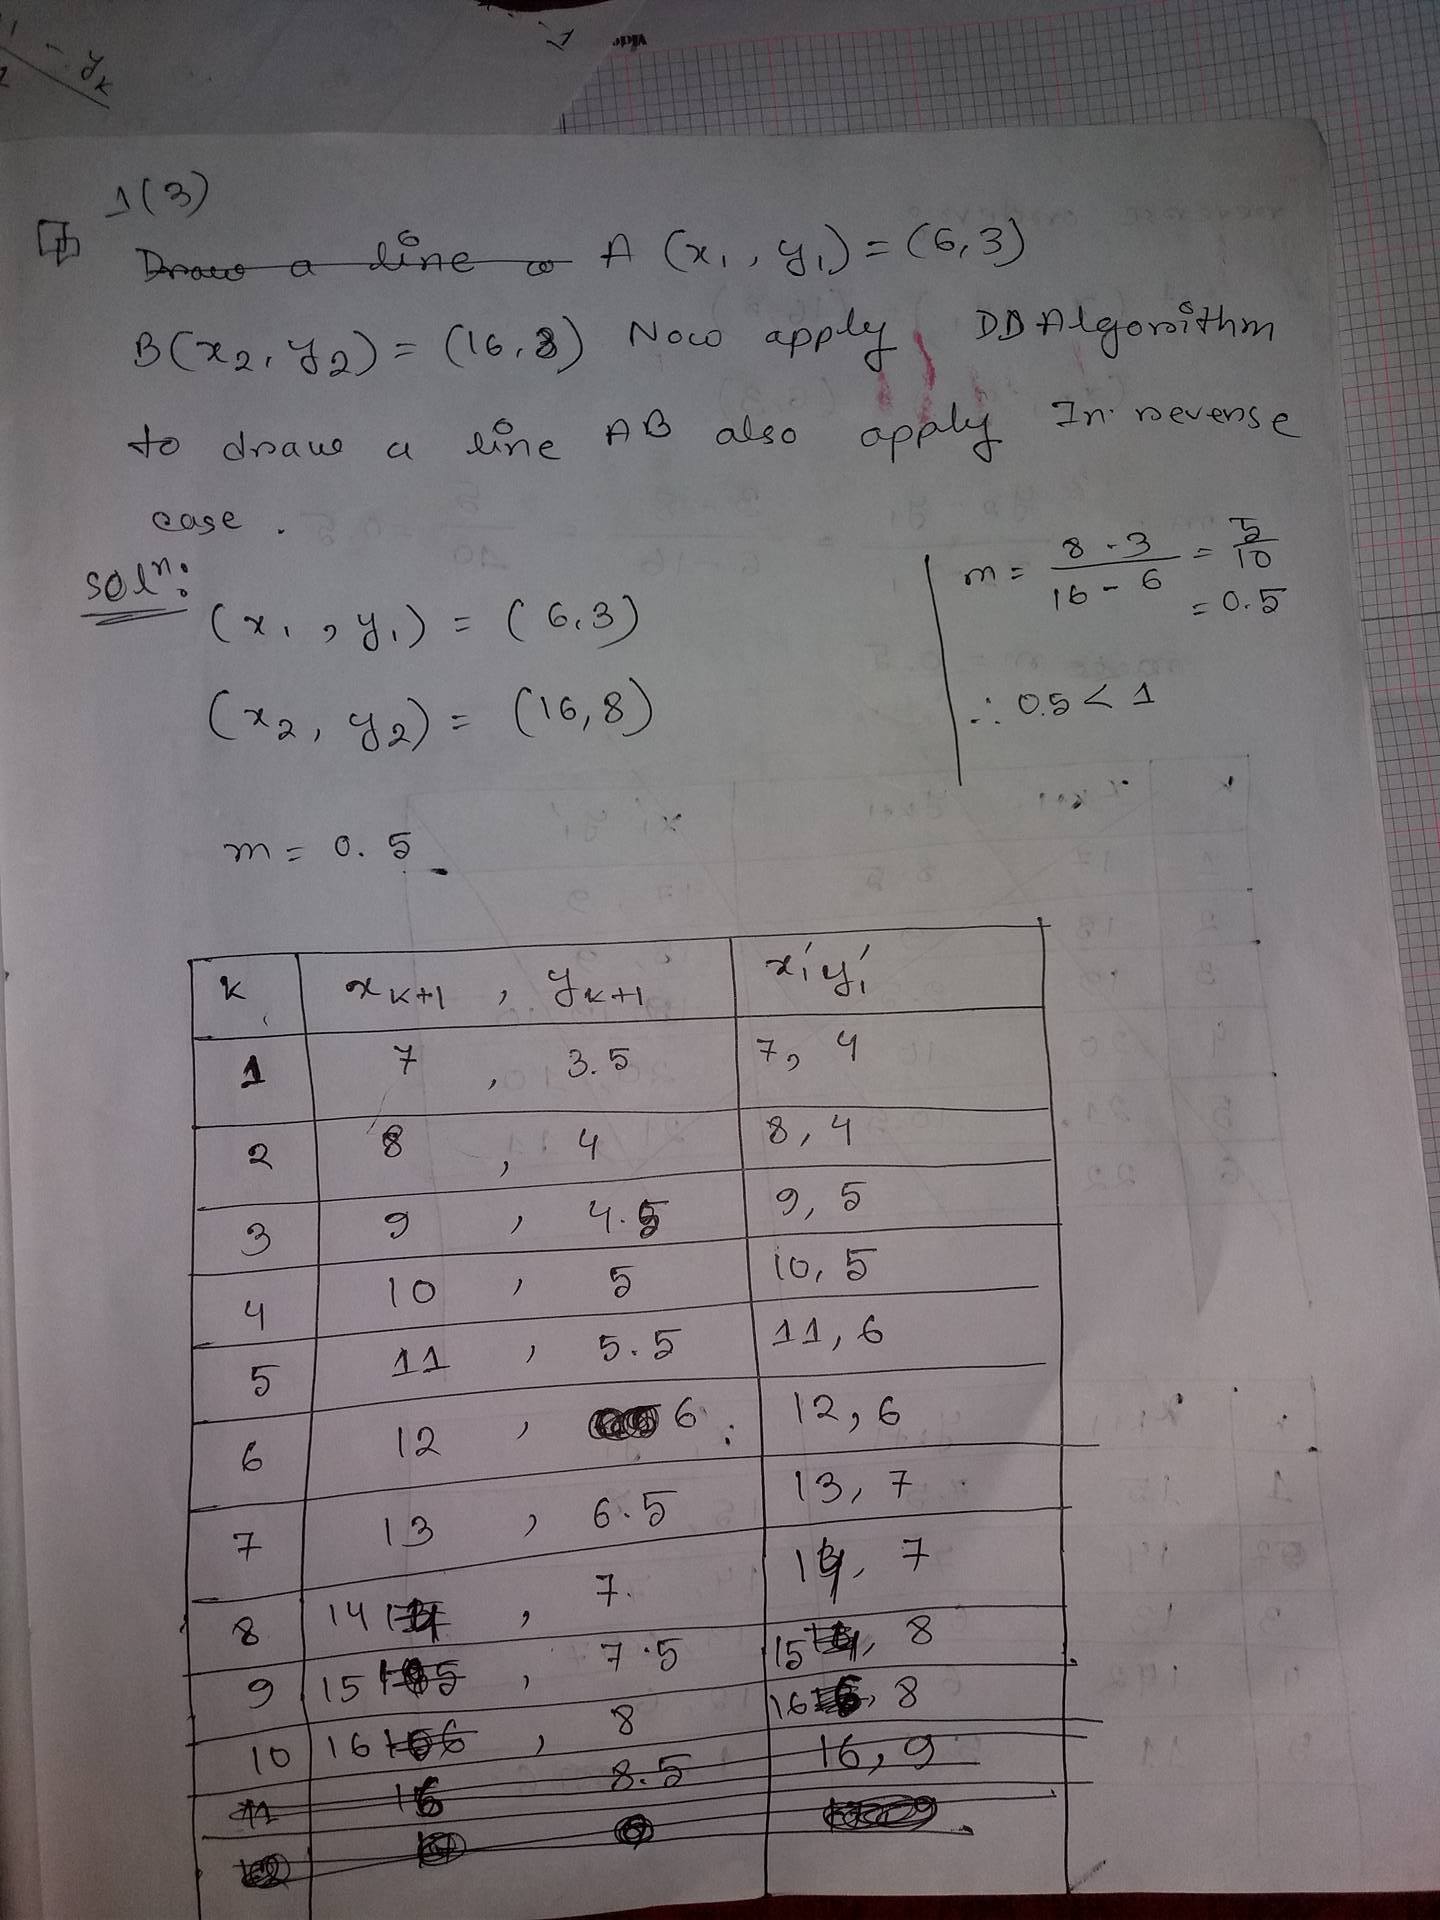 - yk
1(3)
Draw a line A (x1, y1) = (6,3)
B(x2, y2) = (16,8) Now apply DDAlgorithm
to draw a line AB also apply In reverse
case.
Solⁿ:
(x1, y1) = (6,3)
(x2, y2) = (16,8)
m = 0.5
m = 8-3/16-6 = 5/10
= 0.5
∴ 0.5 < 1
k xk+1, yk+1 x', y'
1 7, 3.5 7, 4
2 8, 4 8, 4
3 9, 4.5 9, 5
4 10, 5 10, 5
5 11, 5.5 11, 6
6 12, 6 12, 6
7 13, 6.5 13, 7
8 14, 7 14, 7
9 15, 7.5 15, 8
10 16, 8 16, 8
11 16 8.5 16, 9